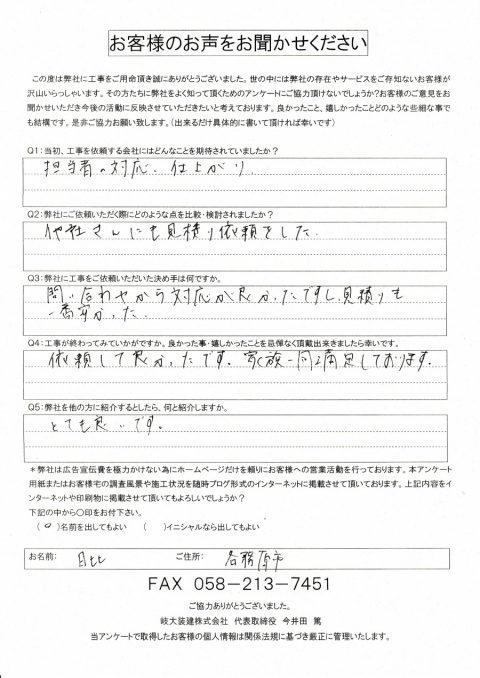 お客様のお声をお聞かせください
この度は弊社に工事をご用命頂き誠にありがとうございました。世の中には弊社の存在やサービスをご存知ないお客様が
沢山いらっしゃいます。その方たちに弊社をよく知って頂くためのアンケートにご協力頂けないでしょうか?お客様のご意見をお
聞かせいただき今後の活動に反映させていただきたいと考えております。良かったこと、嬉しかったことどのような些細な事で
も結構です。是非ご協力お願い致します。(出来るだけ具体的に書いて頂ければ幸いです)
Q1:当初、工事を依頼する会社にはどんなことを期待されていましたか?
担当者の対応、仕上がり
Q2:弊社にご依頼いただく際にどのような点を比較・検討されましたか?
他社さんにも見積り依頼をした.
Q3:弊社に工事をご依頼いただいた決め手は何ですか。
問い合わせから対応が良かったですし、見積りも
一番安かった.
Q4:工事が終わってみていかがですか。良かった事・嬉しかったことを忌憚なく頂戴出来きましたら幸いです。
依頼して良かったです。家族一同満足しております.
Q5:弊社を他の方に紹介するとしたら、何と紹介しますか。
とても良いです。
*弊社は広告宣伝費を極力かけない為にホームページだけを頼りにお客様への営業活動を行っております。本アンケート
用紙またはお客様宅の調査風景や施工状況を随時ブログ形式のインターネットに掲載させて頂いております。上記内容をイ
ンターネットや印刷物に掲載させて頂いてもよろしいでしょうか?
下記の中から○印をお付下さい。
(○)名前を出してもよい ( )イニシャルなら出してもよい
お名前: 日比 ご住所: 各務原市
FAX 058-213-7451
ご協力ありがとうございました。
岐大装建株式会社 代表取締役 今井田 篤
当アンケートで取得したお客様の個人情報は関係法規に基づき厳正に管理いたします。